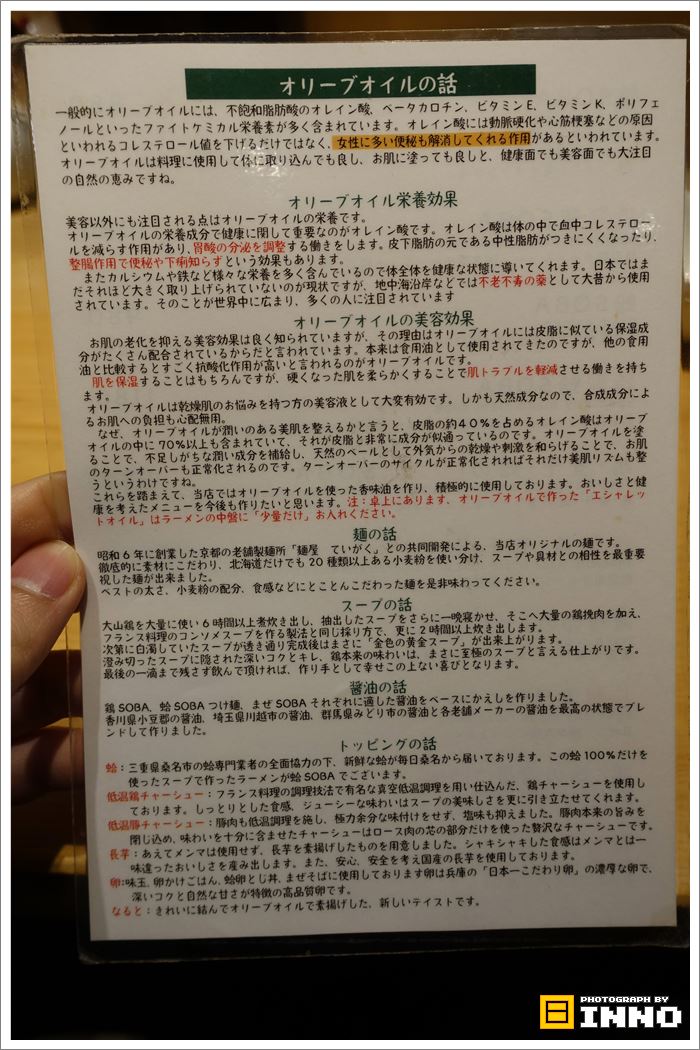 オリーブオイルの話
一般的にオリーブオイルには、不飽和脂肪酸のオレイン酸、ベータカロチン、ビタミンE、ビタミンK、ポリフェ
ノールといったファイトケミカル栄養素が多く含まれています。オレイン酸には動脈硬化や心筋梗塞などの原因
といわれるコレステロール値を下げるだけではなく、女性に多い便秘も解消してくれる作用があるといわれています。
オリーブオイルは料理に使用して体に取り込んでも良し、お肌に塗っても良しと、健康面でも美容面でも大注目
の自然の恵みですね。
オリーブオイル栄養効果
美容以外にも注目される点はオリーブオイルの栄養です。
オリーブオイルの栄養成分で健康に関して重要なのがオレイン酸です。オレイン酸は体の中で血中コレステロー
ルを減らす作用があり、胃酸の分泌を調整する働きをします。皮下脂肪の元である中性脂肪がつきにくくなったり、
整腸作用で便秘や下痢知らずという効果もあります。
またカルシウムや鉄など様々な栄養を多く含んでいるので体全体を健康な状態に導いてくれます。日本ではま
だそれほど大きく取り上げられていないのが現状ですが、地中海沿岸などでは不老不寿の薬として大昔から使用
されています。そのことが世界中に広まり、多くの人に注目されています
オリーブオイルの美容効果
お肌の老化を抑える美容効果は良く知られていますが、その理由はオリーブオイルには皮脂に似ている保湿成
分がたくさん配合されているからだと言われています。本来は食用油として使用されてきたのですが、他の食用
油と比較するとすごく抗酸化作用が高いと言われるのがオリーブオイルです。
肌を保湿することはもちろんですが、硬くなった肌を柔らかくすることで肌トラブルを軽減させる働きを持ち
ます。
オリーブオイルは乾燥肌のお悩みを持つ方の美容液として大変有効です。しかも天然成分なので、合成成分によ
るお肌への負担も心配無用。
なぜ、オリーブオイルが潤いのある美肌を整えるかと言うと、皮脂の約40%を占めるオレイン酸はオリーブ
オイルの中に70%以上も含まれていて、それが皮脂と非常に成分が似通っているのです。オリーブオイルを塗
ることで、不足しがちな潤い成分を補給し、天然のベールとして外気からの乾燥や刺激を和らげることで、お肌
のターンオーバーも正常化されるのです。ターンオーバーのサイクルが正常化されればそれだけ美肌リズムも整
うというわけですね。
これらを踏まえて、当店ではオリーブオイルを使った香味油を作り、積極的に使用しております。おいしさと健
康を考えたメニューを今後も作りたいと思います。注:卓上にあります、オリーブオイルで作った「エシャレッ
トオイル」はラーメンの中盤に「少量だけ」お入れください。
麺の話
昭和6年に創業した京都の老舗製麺所「麺屋 ていがく」との共同開発による、当店オリジナルの麺です。
徹底的に素材にこだわり、北海道だけでも20種類以上ある小麦粉を使い分け、スープや具材との相性を最重要
視した麺が出来ました。
ベストの太さ、小麦粉の配分、食感などにとことんこだわった麺を是非味わってください。
スープの話
大山鶏を大量に使い6時間以上煮炊き出し、抽出したスープをさらに一晩寝かせ、そこへ大量の鶏挽肉を加え、
フランス料理のコンソメスープを作る製法と同じ採り方で、更に2時間以上炊き出します。
次第に白濁していたスープが透き通り完成後はまさに「金色の黄金スープ」が出来上がります。
澄み切ったスープに隠された深いコクとキレ、鶏本来の味わいは、まさに至極のスープと言える仕上がりです。
最後の一滴まで残さず飲んで頂ければ、作り手として幸せこの上ない喜びとなります。
醤油の話
鶏SOBA、蛤SOBAつけ麺、まぜSOBAそれぞれに適した醤油をベースにかえしを作りました。
香川県小豆郡の醤油、埼玉県川越市の醤油、群馬県みどり市の醤油と各老舗メーカーの醤油を最高の状態でブレ
ンドして作りました。
トッピングの話
蛤:三重県桑名市の蛤専門業者の全面協力の下、新鮮な蛤が毎日桑名から届いております。この蛤100%だけを
使ったスープで作ったラーメンが蛤SOBAでございます。
低温鶏チャーシュー:フランス料理の調理技法で有名な真空低温調理を用い仕込んだ、鶏チャーシューを使用し
ております。しっとりとした食感、ジューシーな味わいはスープの美味しさを更に引き立たせてくれます。
低温豚チャーシュー:豚肉も低温調理を施し、極力余分な味付けをせず、塩味も抑えました。豚肉本来の旨みを
閉じ込め、味わいを十分に含ませたチャーシューはロース肉の芯の部分だけを使った贅沢なチャーシューです。
長芋:あえてメンマは使用せず、長芋を素揚げしたものを用意しました。シャキシャキした食感はメンマとは一
味違ったおいしさを産み出します。また、安心、安全を考え国産の長芋を使用しております。
卵:味玉、卵かけごはん、蛤卵とじ丼、まぜそばに使用しております卵は兵庫の「日本一こだわり卵」の濃厚な卵で、
深いコクと自然な甘さが特徴の高品質卵です。
なると:きれいに結んでオリーブオイルで素揚げした、新しいテイストです。
PHOTOGRAPH BY
INNO